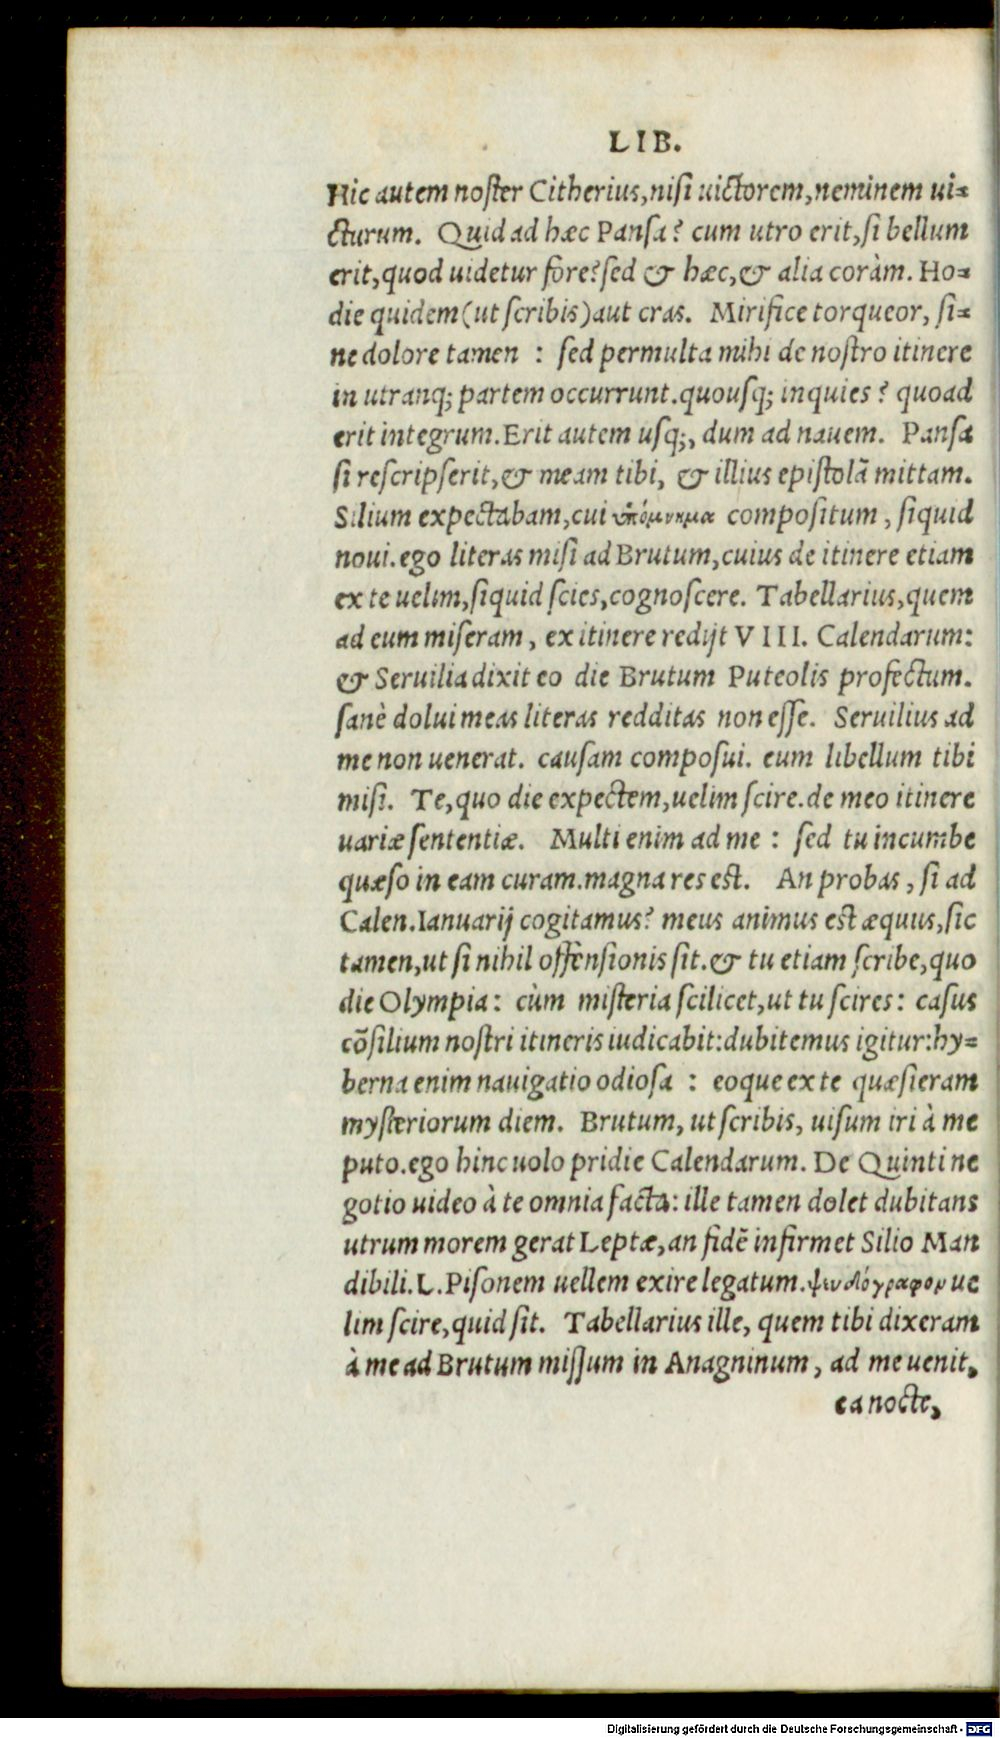 LIB.
Hic autem noſter Citherius,niſi uictorem,neminem ui=
cturum. Quid ad hæc Panſa? cum utro erit,ſi bellum
erit,quod uidetur fore?ſed & hæc,& alia coràm. Ho=
die quidem(ut ſcribis)aut cras. Mirifice torqueor, ſi=
ne dolore tamen : ſed permulta mihi de noſtro itinere
in utranq; partem occurrunt.quouſq; inquies ? quoad
erit integrum.Erit autem uſq;, dum ad nauem. Panſa
ſi reſcripſerit,& meam tibi, & illius epiſtolã mittam.
Silium expectabam,cui ὑπόμνημα compoſitum , ſiquid
noui.ego literas miſi ad Brutum,cuius de itinere etiam
ex te uelim,ſiquid ſcies,cognoſcere. Tabellarius,quem
ad eum miſeram , ex itinere redijt VIII. Calendarum:
& Seruilia dixit eo die Brutum Puteolis profectum.
ſanè dolui meas literas redditas non eſſe. Seruilius ad
me non uenerat. cauſam compoſui. eum libellum tibi
miſi. Te,quo die expectem,uelim ſcire.de meo itinere
uariæ ſententiæ. Multi enim ad me : ſed tu incumbe
quæſo in eam curam.magna res eſt. An probas , ſi ad
Calen.Ianuarij cogitamus? meus animus eſt æquus,ſic
tamen,ut ſi nihil offenſionis ſit.& tu etiam ſcribe,quo
die Olympia: cùm miſteria ſcilicet,ut tu ſcires: caſus
cõſilium noſtri itineris iudicabit:dubitemus igitur:hy=
berna enim nauigatio odioſa : eoque ex te quæſieram
myſteriorum diem. Brutum, ut ſcribis, uiſum iri à me
puto.ego hinc uolo pridie Calendarum. De Quinti ne
gotio uideo à te omnia facta: ille tamen dolet dubitans
utrum morem gerat Leptæ,an fidẽ infirmet Silio Man
dibili.L.Piſonem uellem exire legatum.ψευδόγραφον ue
lim ſcire,quid ſit. Tabellarius ille, quem tibi dixeram
à me ad Brutum miſſum in Anagninum , ad me uenit,
ea nocte,
Digitalisierung gefördert durch die Deutsche Forschungsgemeinschaft - DFG